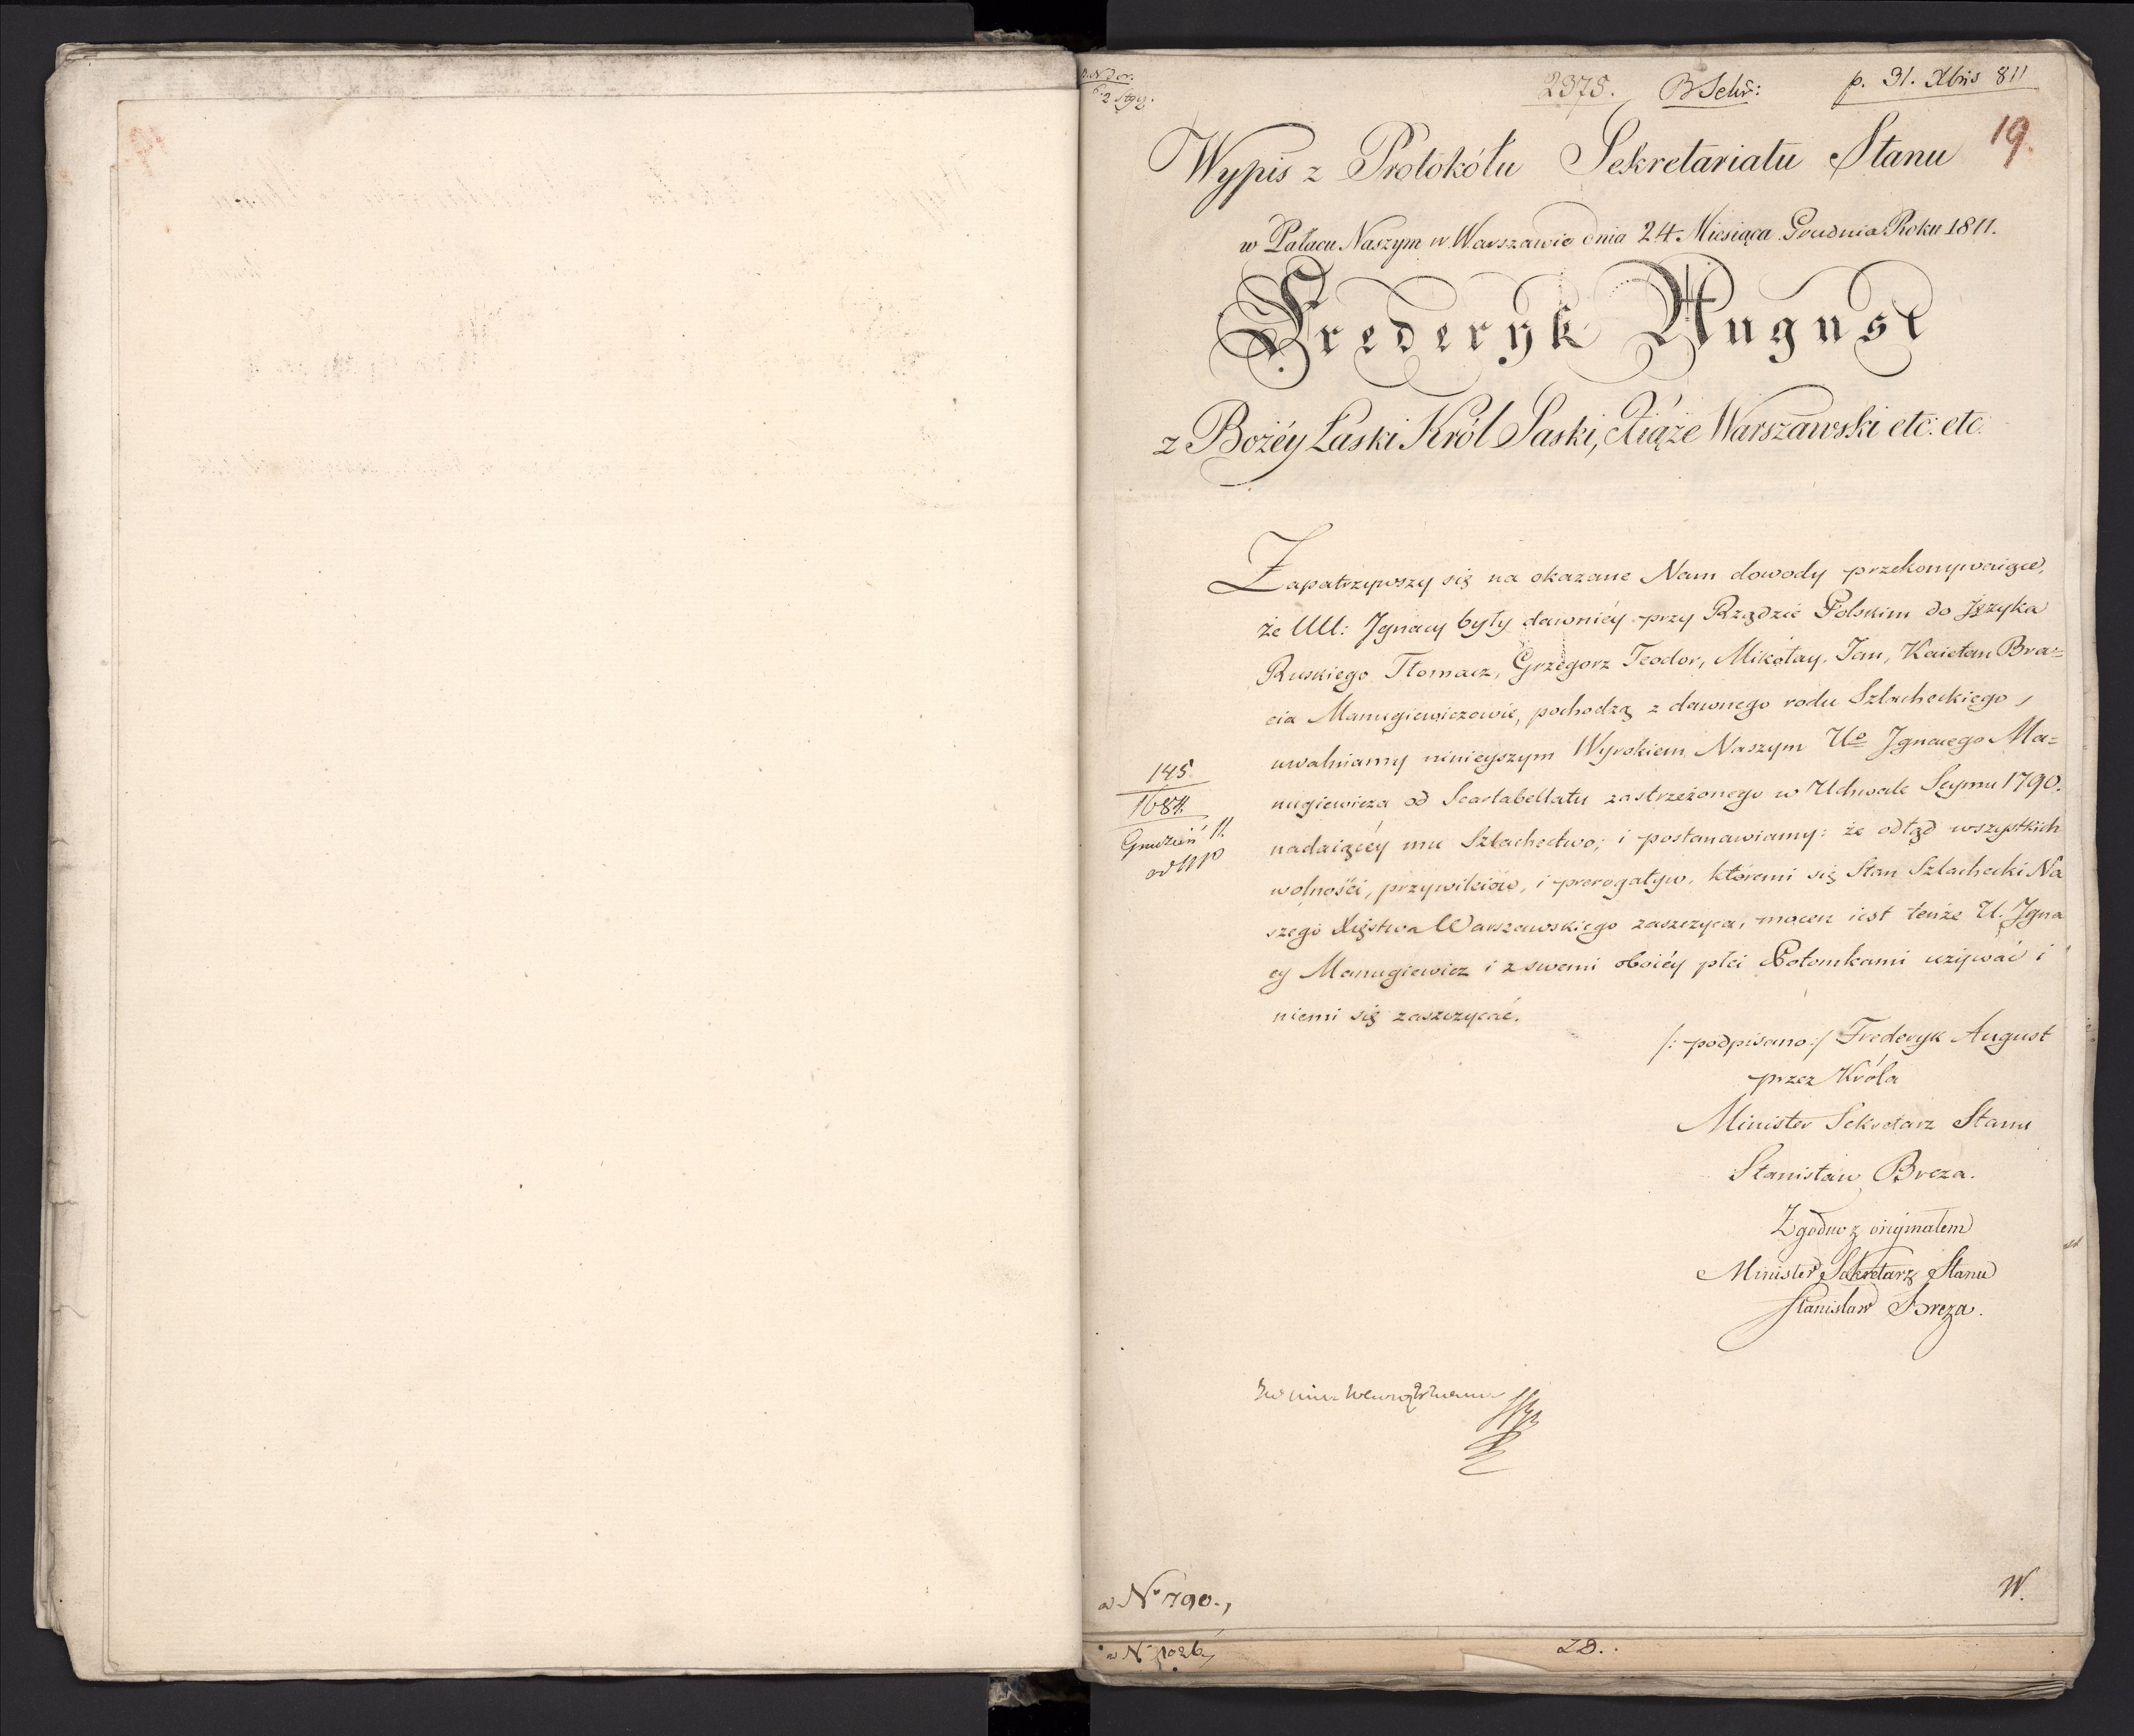 2375. B Sekr: p. 31. Xbris 811
19.
Wypis z Protokółu Sekretariatu Stanu
w Pałacu Naszym w Warszawie dnia 24. Miesiąca Grudnia Roku 1811.
Frederyk August
z Bożéy Łaski Król Saski, Xiąże Warszawski etc: etc:
Zapatrzywszy się na okazane Nam dowody przekonywaiące,
że UU: Jgnacy były dawniéy przy Rządzie Polskim do Języka
Ruskiego Tłomacz, Grzegorz Teodor, Mikołay, Jan, Kaietan Bra=
cia Manugiewiczowie, pochodzą z dawnego rodu Szlacheckiego,
uwalniamy ninieyszym Wyrokiem Naszym Uo Jgnacego Ma=
nugiewicza od Scartabellatu zastrzeżonego w Uchwale Seymu 1790.
nadaiącéy mu Szlachectwo; i postanawiamy: że odtąd wszystkich
wolności, przywileiów, i prerogatyw, któremi się Stan Szlachecki Na
szego Xięstwa Warszawskiego zaszczyca, mocen iest tenże U. Jgna
cy Manugiewicz i z swemi oboiéy płci Potomkami używać i
niemi się zaszczycać.
145
1684.
Grudzień 11.
/: podpisano :/ Frederyk August
przez Króla
Minister Sekretarz Stanu
Stanisław Breza.
Zgodno z oryginałem
Minister Sekretarz Stanu
Stanisław Breza.
a No 790.,
W.
a N 1026,